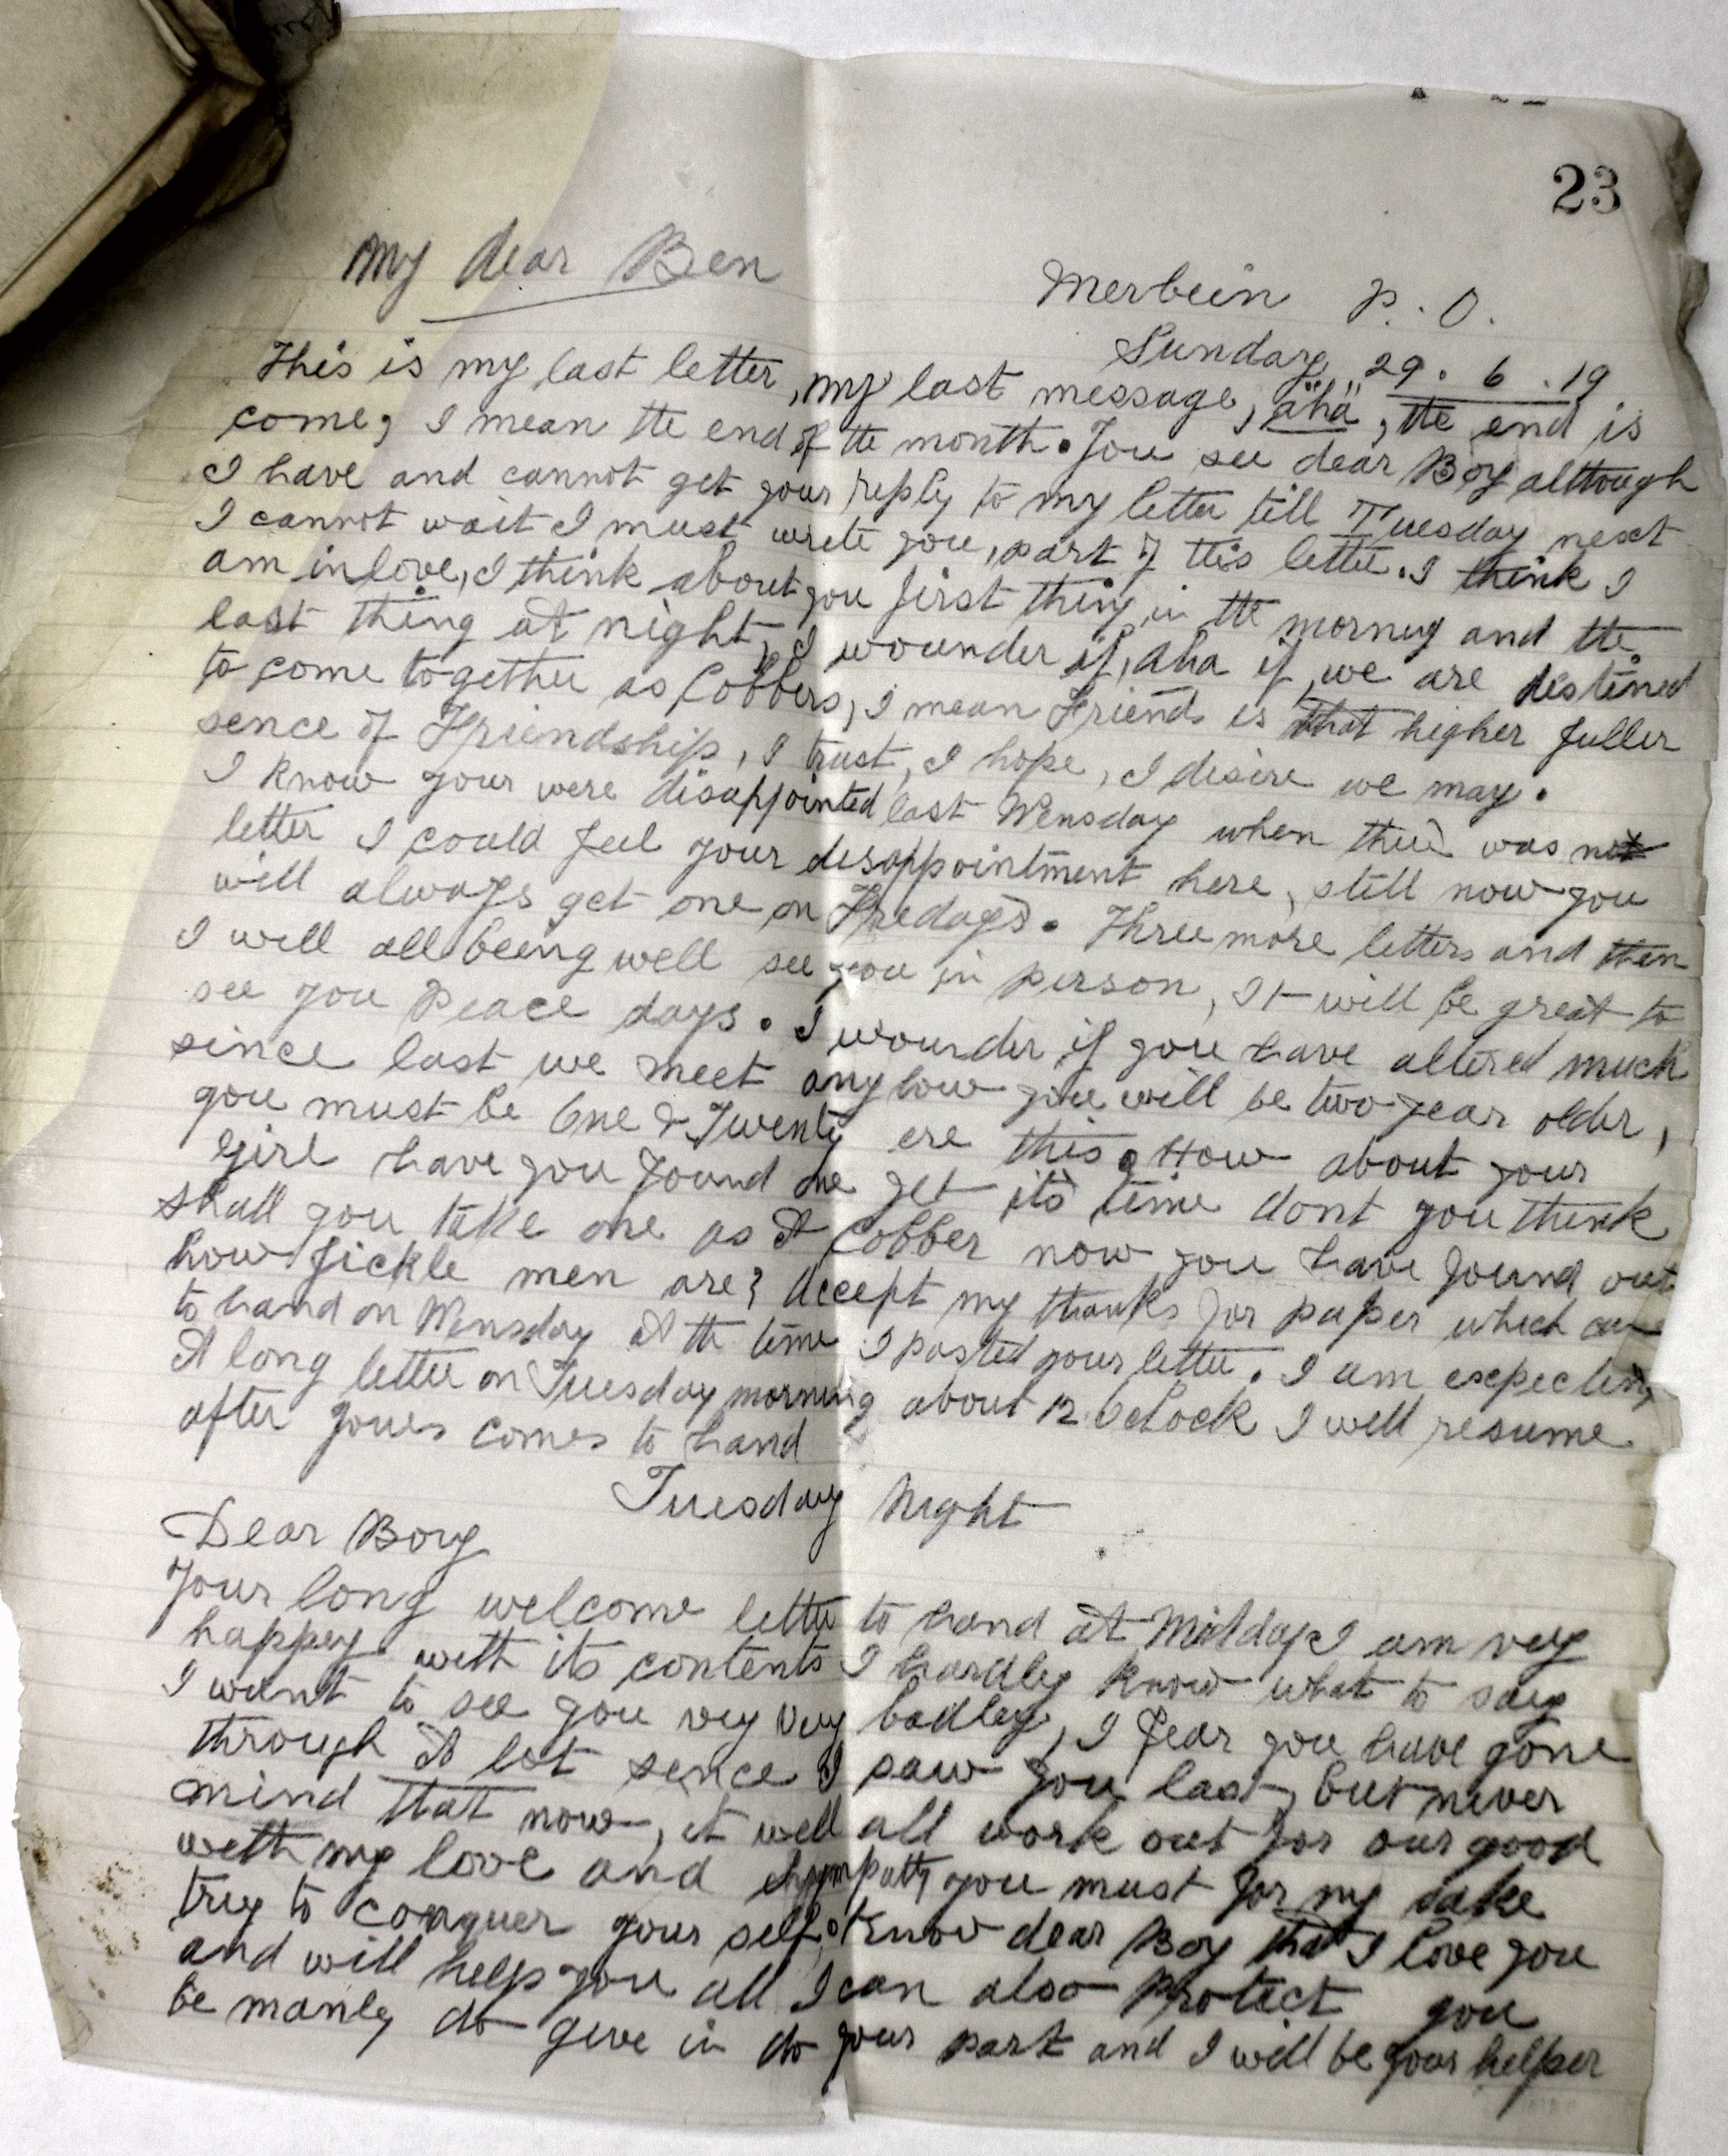 23
My dear Ben
Merbein P.O.
Sunday 29.6.19
This is my last letter, my last message, "aha", the end is
come, I mean the end of the month. You see dear Boy although
I have and cannot get your reply to my letter till Tuesday next
I cannot wait I must write you, part of this letter. I think I
am in love, I think about you first thing in the morning and the
last thing at night, I wounder if, aha if, we are destined
to come together as Cobbers, I mean Friends is that higher fuller
sence of Friendship, I trust, I hope, I desire we may.
I know your were disappointed last Wensday when there was not
letter I could feel your disappointment here, still now you
will always get one on Fredays. Three more letters and then
I will all being well see you in person, It will be great to
see you Peace days. I wounder if you have altered much
since last we meet anyhow you will be two year older,
you must be One & Twenty ere this. How about your
Girl have you found one yet its time dont you think
shall you take one as A Cobber now you have found out
how fickle men are? Accept my thanks for paper which came
to hand on Wensday At the time I posted your letter. I am expecting
A long letter on Tuesday morning about 12 Oclock I will resume
after yours comes to hand
Tuesday Night
Dear Boy
Your long welcome letter to hand at Midday I am very
happy with its contents I hardley know what to say
I want to see you very very badley, I fear you have gone
through A lot sence I saw you last, but never
mind that now, it well all work out for our good
with my love and sympathy you must for my sake
try to conquer your self. Know dear Boy that I love you
and will help you all I can also Protect you
be manly do give in do your part and I will be your helper